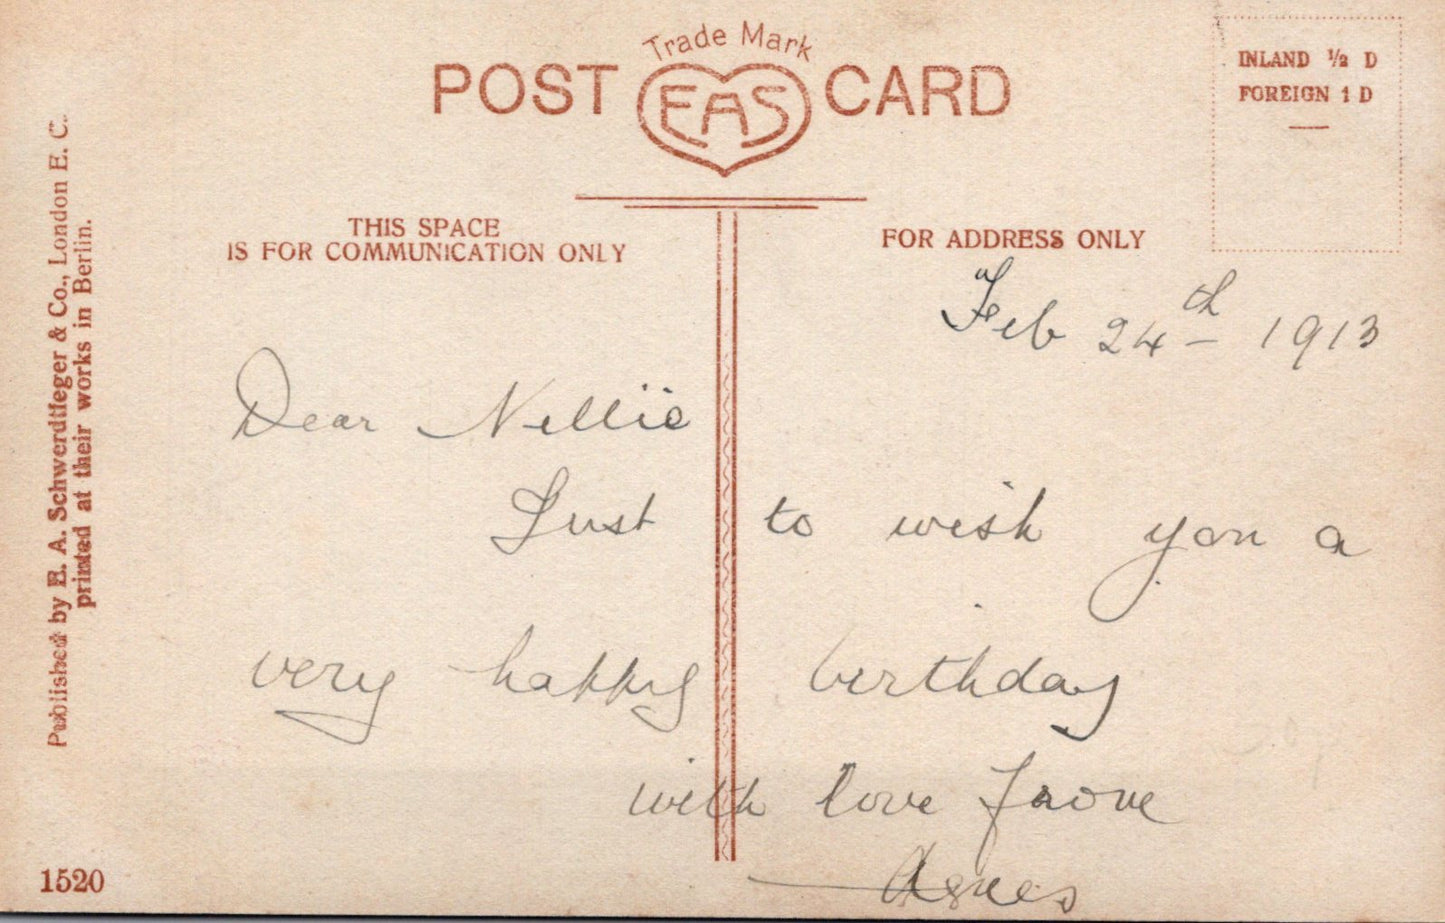 Trade Mark
POST EAS CARD
INLAND ½ D
FOREIGN 1 D
THIS SPACE
IS FOR COMMUNICATION ONLY
FOR ADDRESS ONLY
Published by E. A. Schwerdtfeger & Co., London E. C.
printed at their works in Berlin.
Feb 24th 1913
Dear Nellie
Just to wish you a
very happy birthday
with love from
Agnes
1520